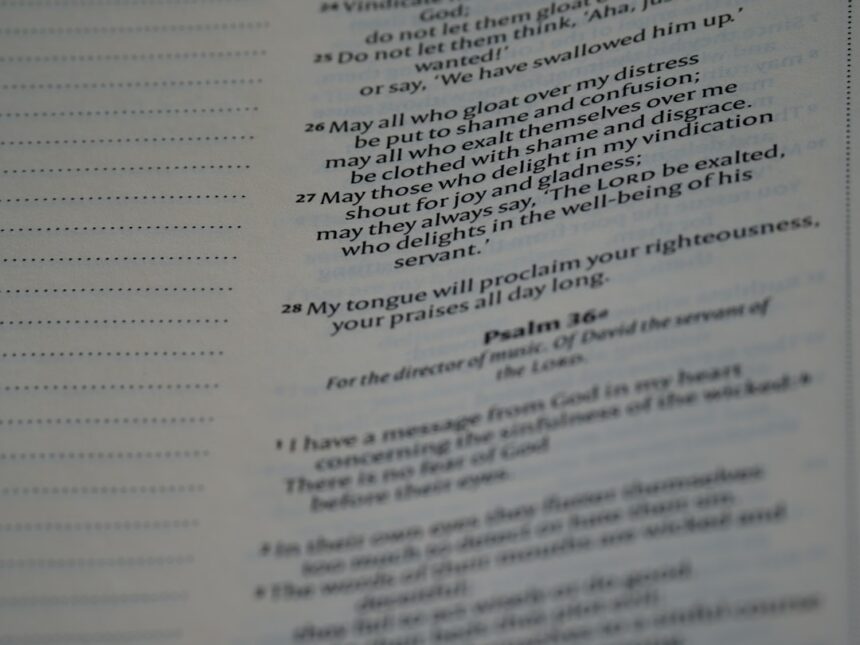 24 Vindicate
God;
do not let them gloat
25 Do not let them think, ‘Aha, just
wanted!’
or say, ‘We have swallowed him up.’
26 May all who gloat over my distress
be put to shame and confusion;
may all who exalt themselves over me
be clothed with shame and disgrace.
27 May those who delight in my vindication
shout for joy and gladness;
may they always say, ‘The LORD be exalted,
who delights in the well-being of his
servant.’
28 My tongue will proclaim your righteousness,
your praises all day long.
Psalm 36a
For the director of music. Of David the servant of
the LORD.
1 I have a message from God in my heart
concerning the sinfulness of the wicked:b
There is no fear of God
before their eyes.
2 In their own eyes they flatter themselves
too much to detect or hate their sin.
The words of their mouths are wicked and
deceitful;